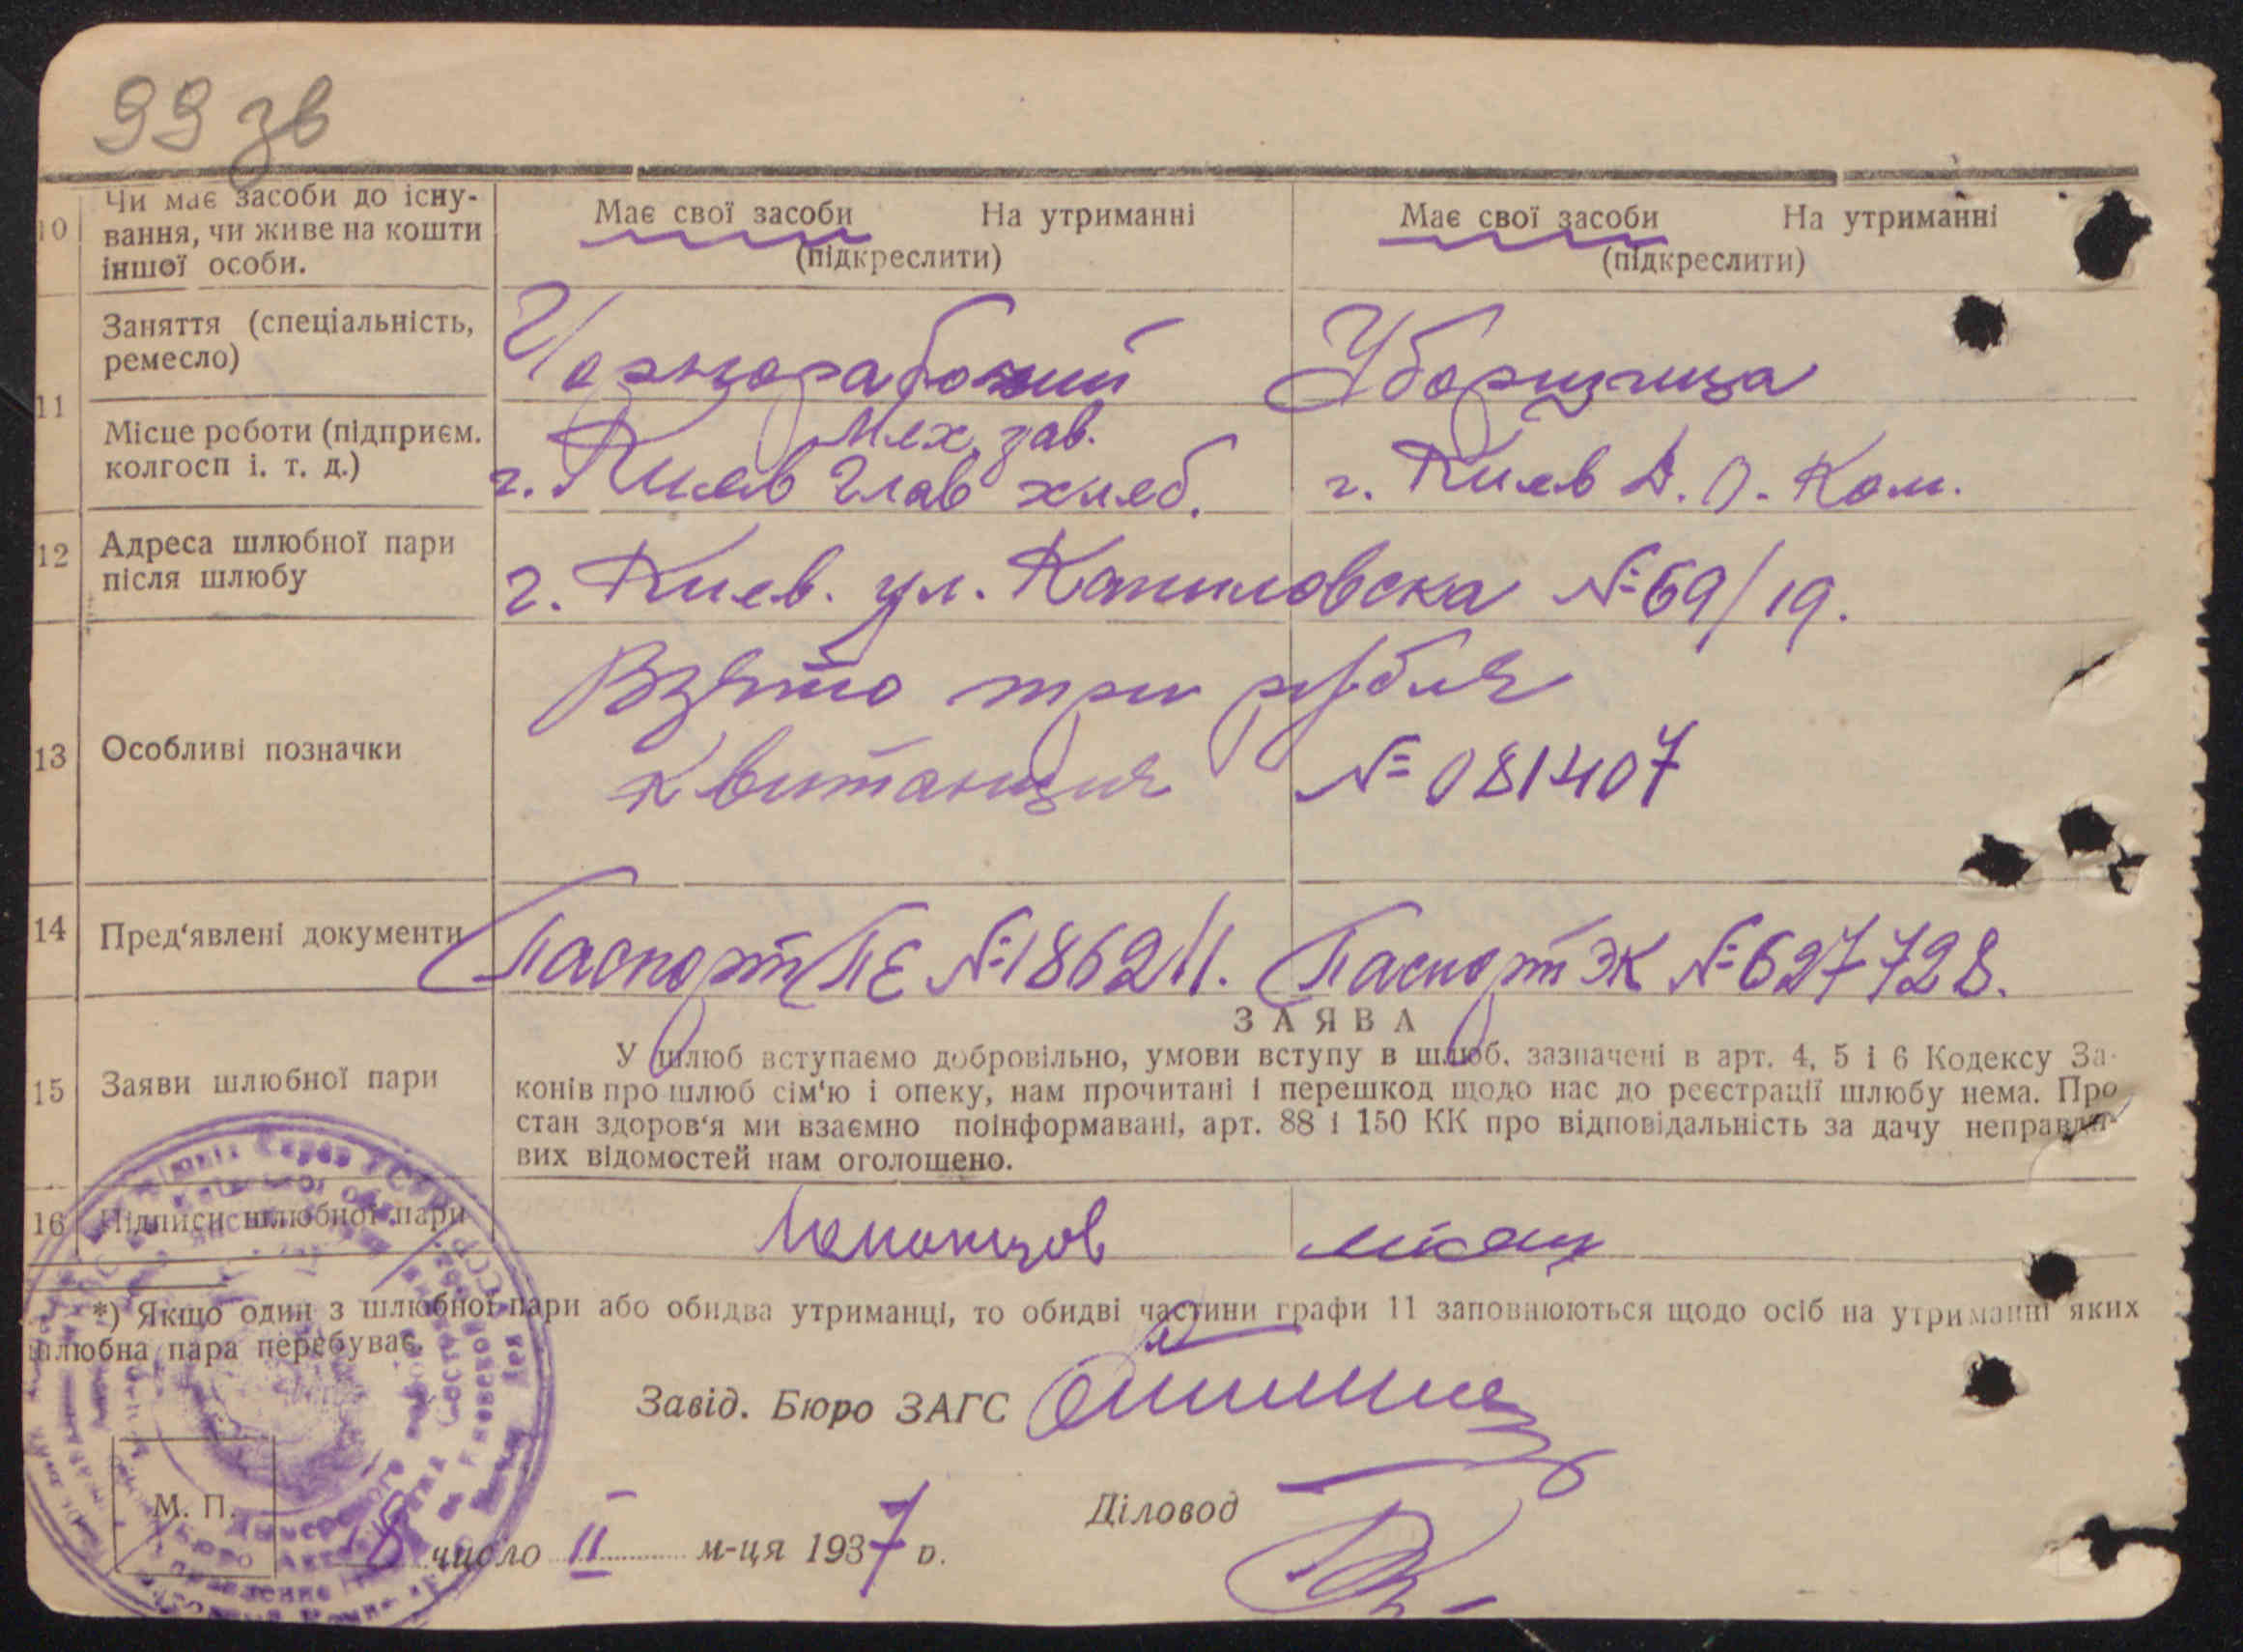 99 зв
10 Чи має засоби до існу-
вання, чи живе на кошти
іншої особи.
Має свої засоби На утриманні
(підкреслити)
Має свої засоби На утриманні
(підкреслити)
11
Заняття (спеціальність,
ремесло)
Чорнорабочий
Уборщица
Місце роботи (підприєм.
колгосп і. т. д.)
Мех. зав.
г. Киев Глав хлеб.
г. Киев Д. О. Ком.
12 Адреса шлюбної пари
після шлюбу
г. Киев. ул. №69/19.
13 Особливі позначки
Взято три рубля
Квитанция №081407
14 Пред'явлені документи
Паспорт ПЕ №186211.
Паспорт ЭК №627728.
15 Заяви шлюбної пари
ЗАЯВА
У шлюб вступаємо добровільно, умови вступу в шлюб. зазначені в арт. 4, 5 і 6 Кодексу За-
конів про шлюб сім'ю і опеку, нам прочитані і перешкод щодо нас до реєстрації шлюбу нема. Про
стан здоров'я ми взаємно поінформавані, арт. 88 і 150 КК про відповідальність за дачу неправди-
вих відомостей нам оголошено.
16 Підписи шлюбної пари
*) Якщо один з шлюбної пари або обидва утриманці, то обидві частини графи 11 заповнюються щодо осіб на утриманні яких
шлюбна пара перебуває.
Завід. Бюро ЗАГС
Діловод
М. П.
18 число II м-ця 1937 р.